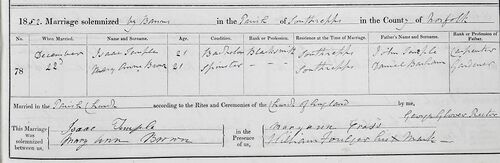 1852. Marriage solemnized by Banns in the Parish of Southrepps in the County of Norfolk
No. When Married. Name and Surname. Age. Condition. Rank or Profession. Residence at the Time of Marriage. Father's Name and Surname. Rank or Profession of Father.
78 December 22d Isaac Temple 21 Bachelor Blacksmith Southrepps John Temple Carpenter
Mary Ann 21 Spinster - - - Southrepps Daniel Gardener
Married in the Parish Church according to the Rites and Ceremonies of the Church of England by me,
George Glover Rector
This Marriage was solemnized between us, Isaac Temple
Mary Ann in the Presence of us, Mary Ann
William his Mark